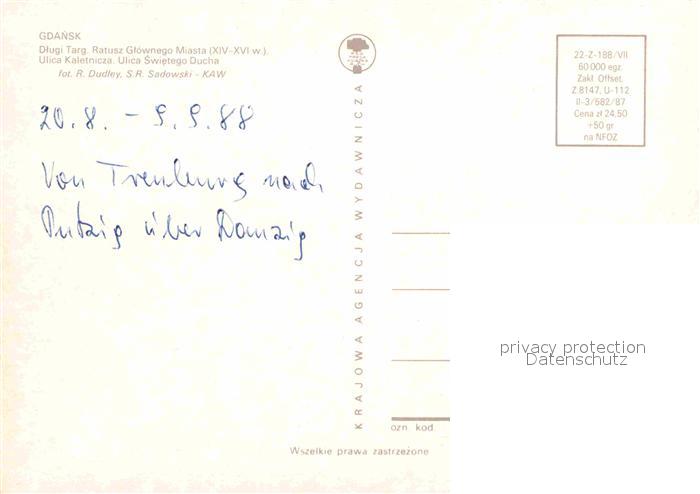 GDAŃSK
Długi Targ. Ratusz Głównego Miasta (XIV–XVI w.).
Ulica Kaletnicza. Ulica Świętego Ducha
fot. R. Dudley, S.R. Sadowski - KAW
22-Z-188/VII
60 000 egz.
Zakł. Offset.
Z 8147, U-112
II-3/582/87
Cena zł 24,50
+50 gr
na NFOZ
20. 8. – 9. 9. 88
Von Trenburg nach
Putzig über Danzig
KRAJOWA AGENCJA WYDAWNICZA
privacy protection
Datenschutz
ozn. kod.
Wszelkie prawa zastrzeżone